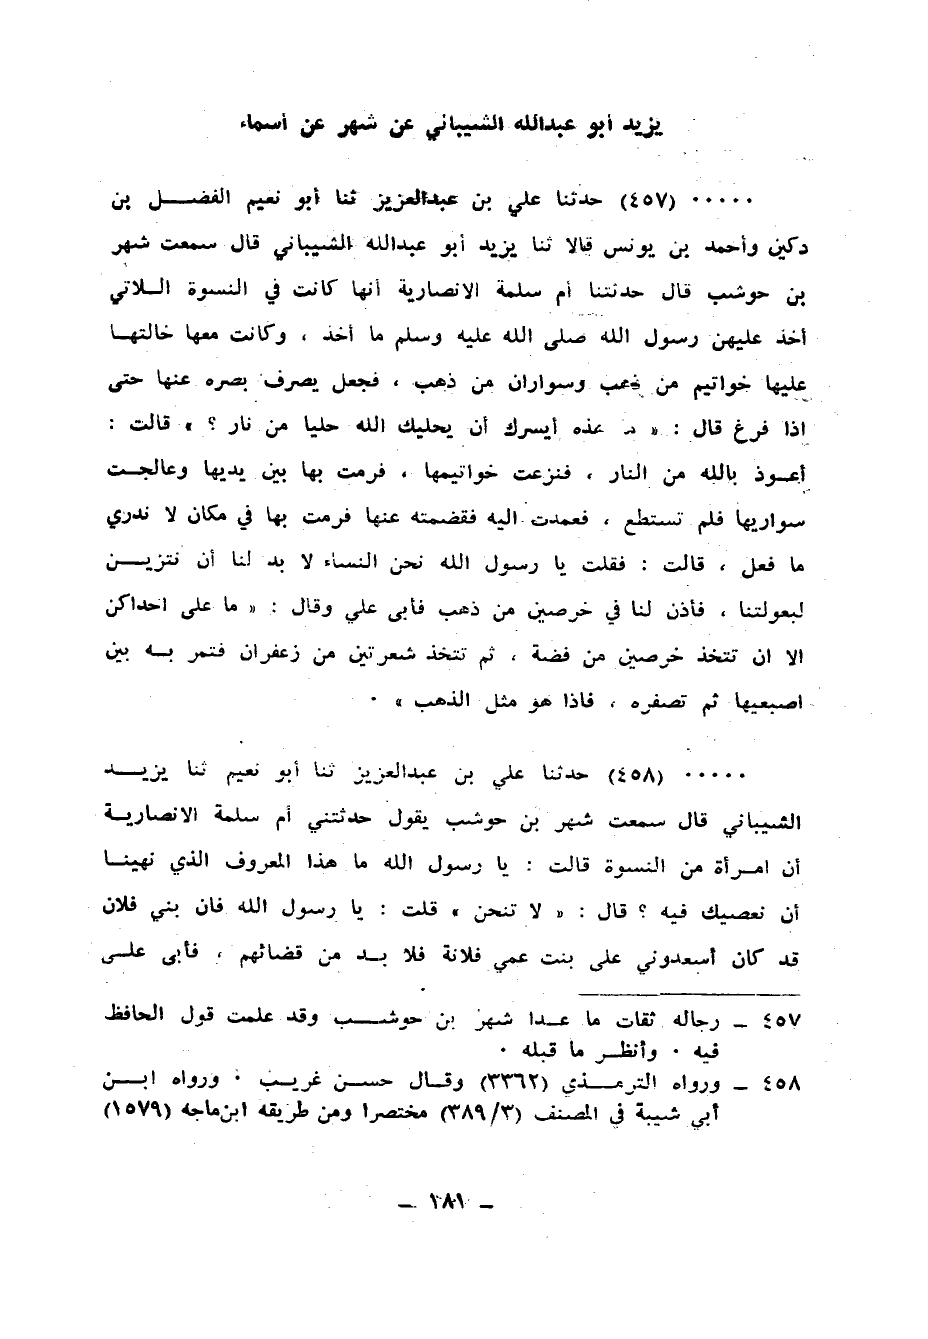 يزيد أبو عبدالله الشيباني عن شهر عن أسماء
٠٠٠٠٠ (٤٥٧) حدثنا علي بن عبدالعزيز ثنا أبو نعيم الفضل بن
دكين وأحمد بن يونس قالا ثنا يزيد أبو عبدالله الشيباني قال سمعت شهر
بن حوشب قال حدثتنا أم سلمة الانصارية أنها كانت في النسوة اللاتي
أخذ عليهن رسول الله صلى الله عليه وسلم ما أخذ ، وكانت معها خالتها
عليها خواتيم من ذهب وسواران من ذهب ، فجعل يصرف بصره عنها حتى
اذا فرغ قال : « أيسرك أن يحليك الله حليا من نار ؟ » قالت :
أعوذ بالله من النار ، فنزعت خواتيمها ، فرمت بها بين يديها وعالجت
سواريها فلم تستطع ، فعمدت اليه فقضمته عنها فرمت بها في مكان لا ندري
ما فعل ، قالت : فقلت يا رسول الله نحن النساء لا بد لنا أن نتزين
لبعولتنا ، فأذن لنا في خرصين من ذهب فأبى علي وقال : « ما على احداكن
الا ان تتخذ خرصين من فضة ، ثم تتخذ شعرتين من زعفران فتمر به بين
اصبعيها ثم تصفره ، فاذا هو مثل الذهب » ٠
٠٠٠٠٠ (٤٥٨) حدثنا علي بن عبدالعزيز ثنا أبو نعيم ثنا يزيد
الشيباني قال سمعت شهر بن حوشب يقول حدثتني أم سلمة الانصارية
أن امرأة من النسوة قالت : يا رسول الله ما هذا المعروف الذي نهينا
أن نعصيك فيه ؟ قال : « لا تنحن » قلت : يا رسول الله فان بني فلان
قد كان أسعدوني على بنت عمي فلانة فلا بد من قضائهم ، فأبى على
٤٥٧ ـ رجاله ثقات ما عدا شهر بن حوشب وقد علمت قول الحافظ
فيه ٠ وأنظر ما قبله ٠
٤٥٨ ـ ورواه الترمذي (٣٣٦٢) وقال حسن غريب ٠ ورواه ابن
أبي شيبة في المصنف (٣/٣٨٩) مختصرا ومن طريقه ابن ماجه (١٥٧٩)
ـ ١٨١ ـ